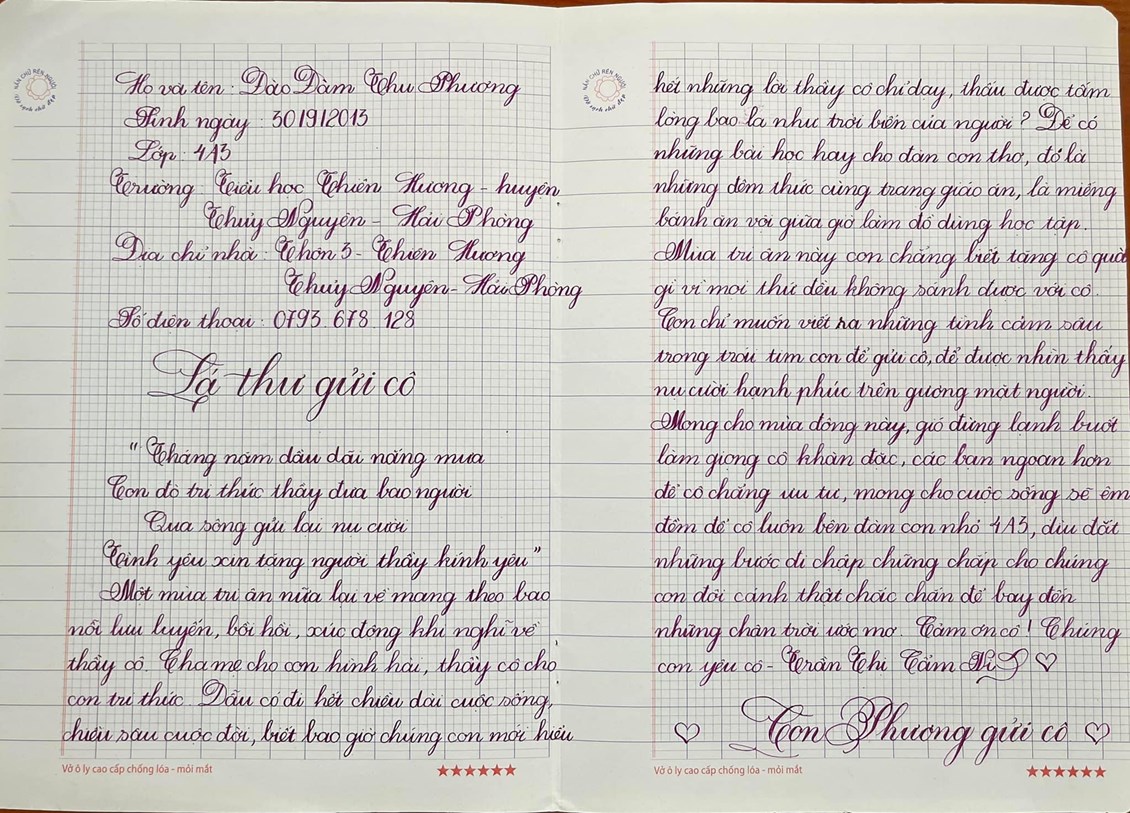 NẮN CHỮ RÈN NGƯỜI
Giữ sạch chữ đẹp
Họ và tên : Đào Đàm Thu Phương
Sinh ngày : 30/9/2013
Lớp : 4A3
Trường : Tiểu học Thiên Hương - huyện
Thuỷ Nguyên - Hải Phòng
Địa chỉ nhà : Thôn 3 - Thiên Hương
Thuỷ Nguyên - Hải Phòng
Số điện thoại : 0793. 678. 128
Lá thư gửi cô
" Tháng năm dầu dãi nắng mưa
Con đò tri thức thầy đưa bao người
Qua sông gửi lại nụ cười
Tình yêu xin tặng người thầy kính yêu"
Một mùa tri ân nữa lại về mang theo bao
nỗi lưu luyến, bồi hồi, xúc động khi nghĩ về
thầy cô. Cha mẹ cho con hình hài, thầy cô cho
con tri thức. Dẫu có đi hết chiều dài cuộc sống,
chiều sâu cuộc đời, biết bao giờ chúng con mới hiểu
Vở ô ly cao cấp chống lóa - mỏi mắt
NẮN CHỮ RÈN NGƯỜI
Giữ sạch chữ đẹp
hết những lời thầy cô chỉ dạy, thấu được tấm
lòng bao la như trời biển của người ? Để có
những bài học hay cho đàn con thơ, đó là
những đêm thức cùng trang giáo án, là miếng
bánh ăn vội giữa giờ làm đồ dùng học tập.
Mùa tri ân này con chẳng biết tặng cô quà
gì vì mọi thứ đều không sánh được với cô.
Con chỉ muốn viết ra những tình cảm sâu
trong trái tim con để gửi cô, để được nhìn thấy
nụ cười hạnh phúc trên gương mặt người.
Mong cho mùa đông này, gió đừng lạnh buốt
làm giọng cô khàn đặc, các bạn ngoan hơn
để cô chẳng ưu tư, mong cho cuộc sống sẽ êm
đềm để cô luôn bên đàn con nhỏ 4A3, dìu dắt
những bước đi chập chững chắp cho chúng
con đôi cánh thật chắc chắn để bay đến
những chân trời ước mơ. Cảm ơn cô ! Chúng
con yêu cô - Trần Thị Cẩm Vi ♡
♡ Con Phương gửi cô ♡
Vở ô ly cao cấp chống lóa - mỏi mắt